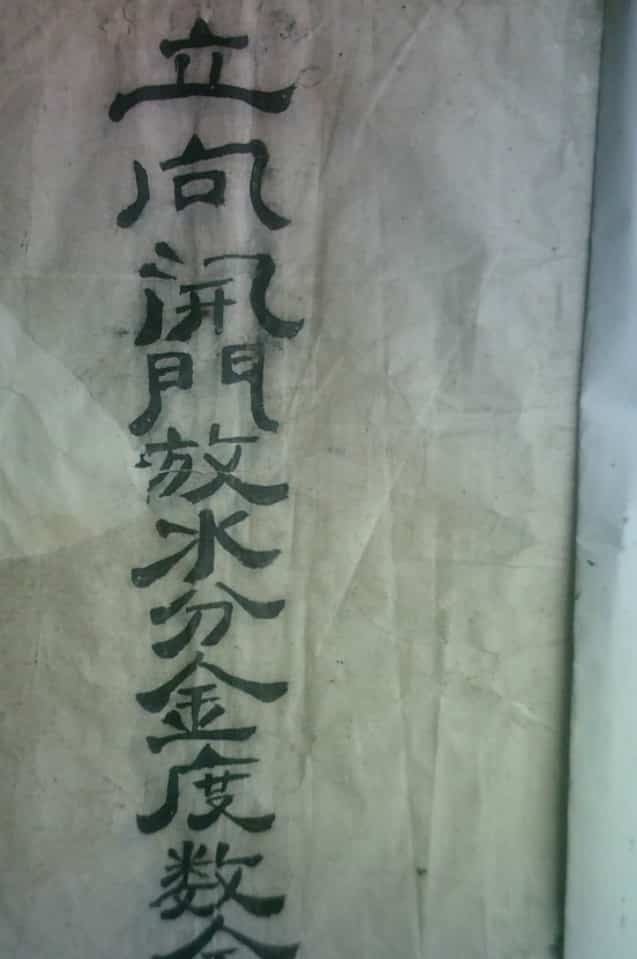 立向開門放水分金度数